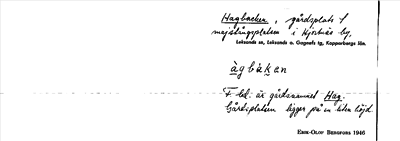 Hagbacken, gårdsplats o.
majstångsplatsen i Hjortnäs by,
Leksands sn, Leksands o. Gagnefs tg, Kopparbergs län.
àgbàkan
F. led. är gårdsnamnet Hag.
Gårdsplatsen ligger på en liten höjd
ERIK-OLOF BERGFORS 1946